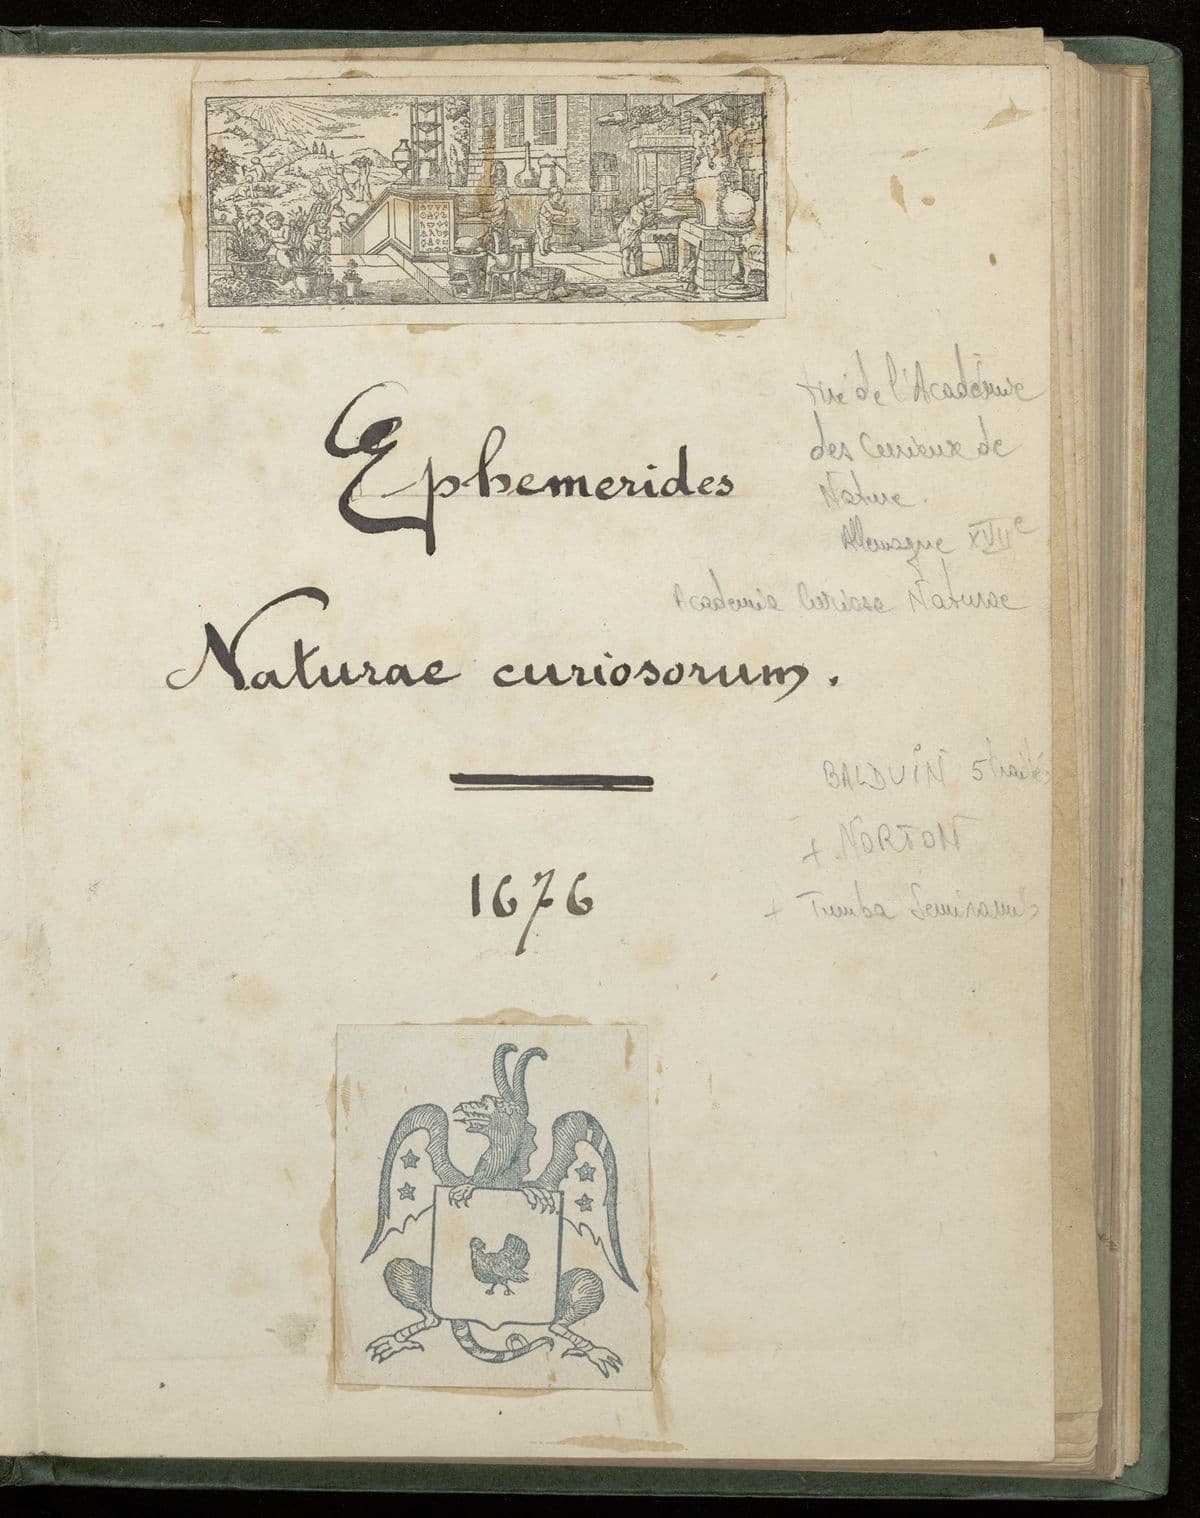 Ephemerides
Naturae curiosorum.
1676
tiré de l'Académie
des Curieux de
Nature.
Allemagne XVIIe
Academia Curiosa Naturae
BALDUIN 5 traités
+ NORTON
+ Tumba Semiramis